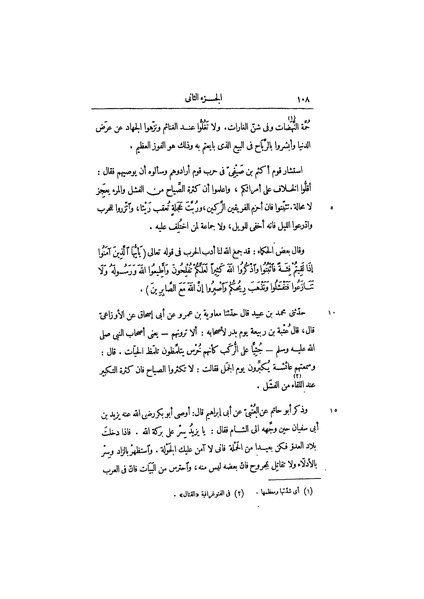 ١٠٨ الجزء الثانى
حُمَّة النَّهَضات وفى شنّ الغارات. ولا تَغُلُّوا عند الغنائم ونزّهوا الجهاد عن عَرَض
الدنيا وأبشروا بالرَّباح فى البيع الذى بايعتم به وذلك هو الفوز العظيم.
استشار قوم أكثم بن صَيْفِىّ فى حرب قوم أرادوهم وسألوه أن يوصيهم فقال:
أقلّوا الخلاف على أمرائكم، واعلموا أن كثرة الصِّياح من الفشل والمرء يعجِز
٥ لا محالة. تثبّتوا فان أحزم الفريقين الركين، ورُبَّتَ عَجَلة تُعقب رَيْثا، واتّزروا للحرب
وادّرعوا الليل فانه أخفى للويل، ولا جماعة لمن اختُلِف عليه.
وقال بعض الحكماء: قد جمع الله لنا أدب الحرب فى قوله تعالى (يَأَيُّهَا الَّذِينَ آمَنُوا
إِذَا لَقِيتُمْ فِئَةً فَاثْبُتُوا وَاذْكُرُوا اللهَ كَثِيرًا لَعَلَّكُمْ تُفْلِحُونَ وَأَطِيعُوا اللهَ وَرَسُولَهُ وَلَا
تَنَازَعُوا فَتَفْشَلُوا وَتَذْهَبَ رِيحُكُمْ وَاصْبِرُوا إِنَّ اللهَ مَعَ الصَّابِرِينَ).
١٠ حدّثنى محمد بن عبيد قال حدّثنا معاوية بن عمرو عن أبى إسحاق عن الأوزاعىّ
قال، قال عُتْبة بن ربيعة يوم بدر لأصحابه: ألا ترونهم — يعنى أصحاب النبى صلى
الله عليه وسلم — جُثِيًّا على الرُّكَب كأنهم خُرْس يتلمَّظون تلمُّظ الحيّات. قال:
وسمعتهم عائشة يُكبِّرون يوم الجمل فقالت: لا تكثروا الصياح فان كثرة التكبير
عند اللقاء(٢) من الفشل.
١٥ وذكر أبو حاتم عن العُتْبىّ عن أبى إبراهيم قال: أوصى أبو بكر رضى الله عنه يزيد بن
أبى سفيان حين وجّهه الى الشام فقال: يا يزيدُ سِرْ على بركة الله. فاذا دخلتَ
بلاد العدوّ فكن بعيدا من الحَمْلة فانى لا آمن عليك الجَوْلة. واستظهر بالزاد وسِرْ
بالأدِلّاء ولا تقاتل بمجروح فان بعضه ليس منه، واحترس من البَيَات فان فى العرب
(١) أى شدّتها ومعظمها. (٢) فى الفتوغرافية «القتال».